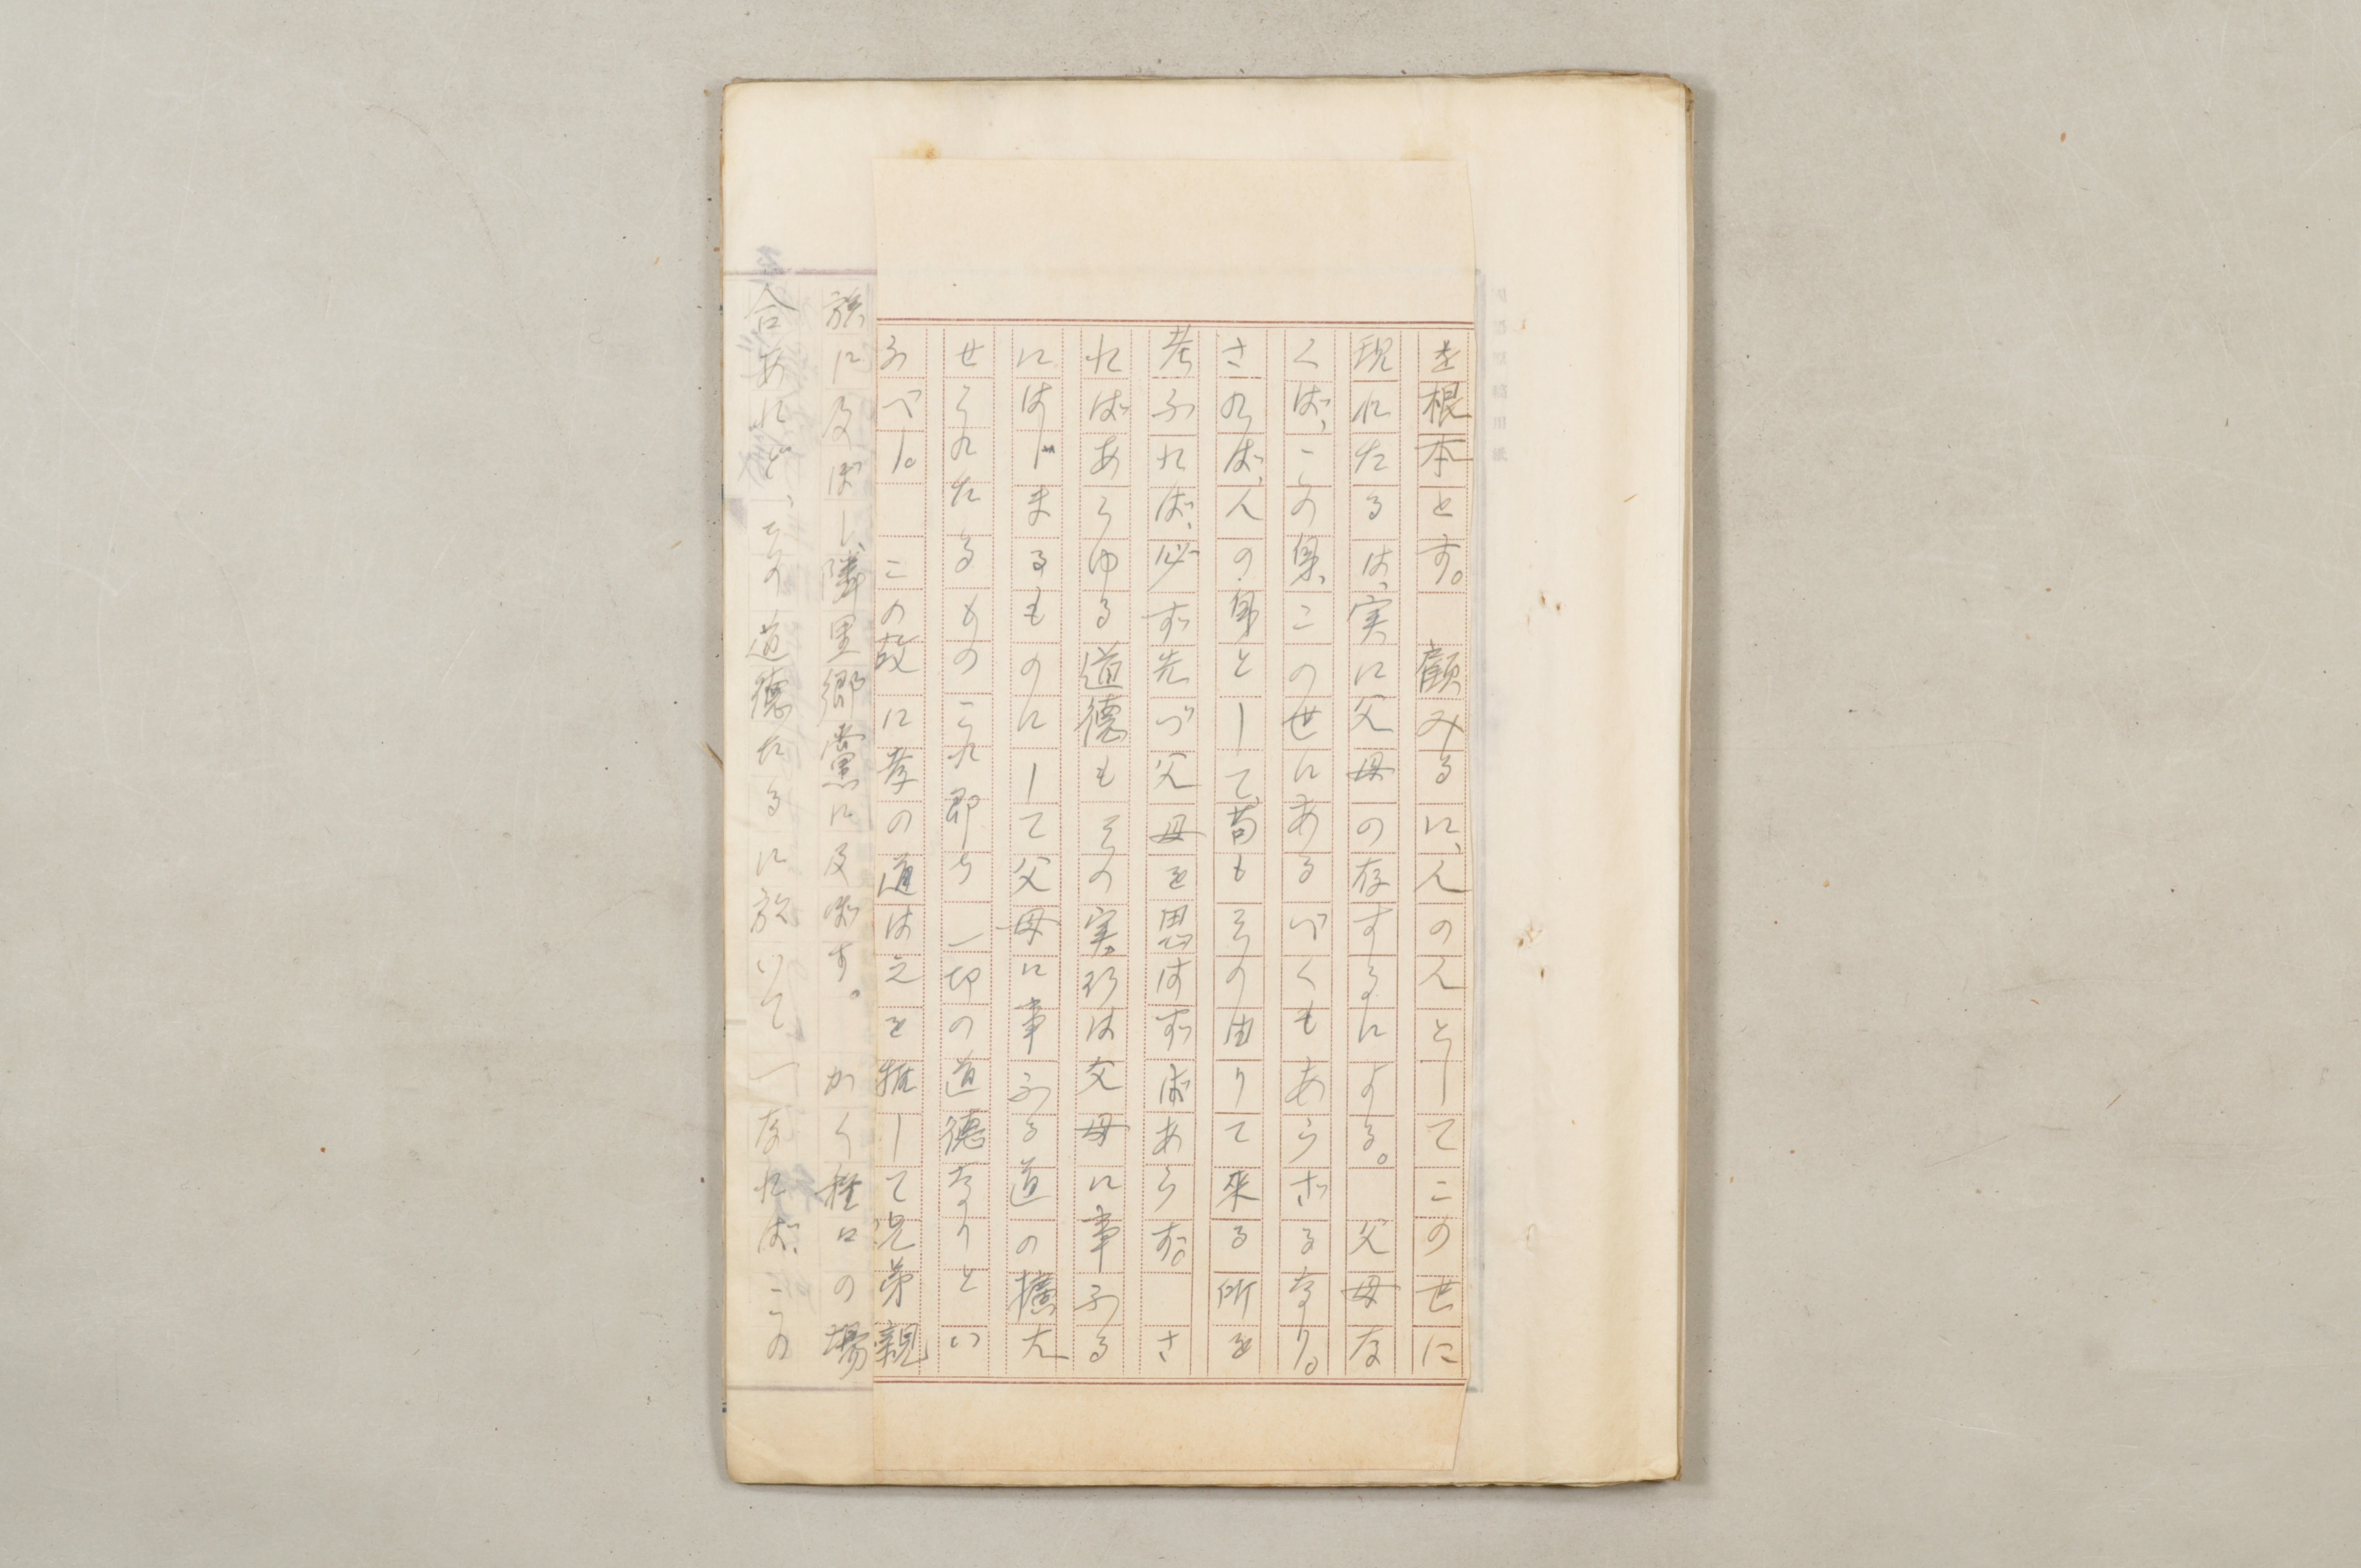 を根本とす。　顧みるに、人の人としてこの世に
現れたるは、実に父母の存するによる。　父母な
くば、この身、この世にあるべくもあらざるなり。
されば、人の身として、苟もその由りて来る所を
考ふれば、必ず先づ父母を思はずばあらず。　さ
ればあらゆる道徳もその実行は父母に事ふる
にはじまるものにして父母に事ふる道の擴大
せられたるものこれ即ち一切の道徳なりとい
ふべし。　この故に孝の道は之を推して兄弟親
族に及ぼし、隣里郷黨に及ぼす。　かく種々の場
合あれど、その道徳たるに於いて一なれば、この